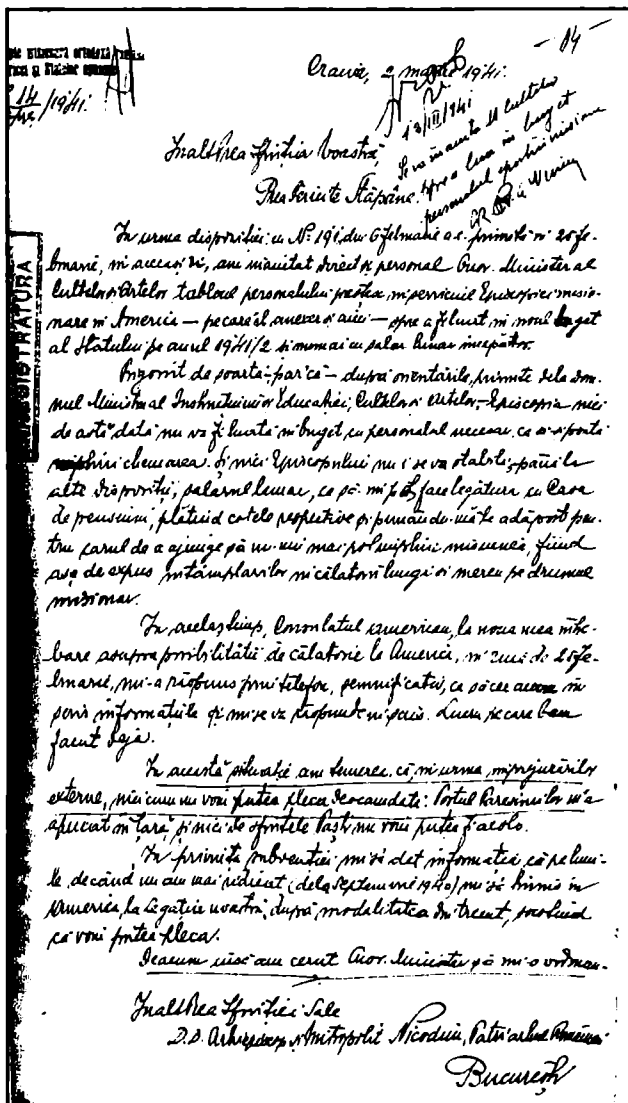 - 84 -
14
/1941.
Craiova, 2 martie 1941.
13/III/941
Se va înainta M. Cultelor
spre a lua în buget
personalul eparhiei misionare
REGISTRATURA
Inalt Prea Sfinția Voastră,
Prea Fericite Stăpâne,
In urma dispoziției cu Nº 191 din 6 februarie a.c. primită în 25 fe-
bruarie, în aceeași zi, am înaintat direct și personal Onor. Minister al
Cultelor și Artelor tabloul personalului în serviciul Episcopiei misio-
nare în America — pe care îl anexez și aici — spre a fi luat în noul buget
al Statului pe anul 1941/2 și numai cu salar lunar începător.
de soartă, parcă — după orientările primite dela dom-
nul Ministru al Instrucțiunii, Educației, Cultelor și Artelor, — Episcopia nici
de astă dată nu va fi luată în buget cu personalul necesar, ca să-și poată
împlini chemarea. Și nici Episcopului nu i se va stabili, până la
alte dispoziții, salarul lunar, ca să-mi pot face legătura cu Casa
de pensiuni, plătind cotele respective și punându-mă la adăpost pen-
tru cazul de a ajunge să nu-mi mai pot împlini misiunea, fiind
așa de expus întâmplărilor în călătorii lungi și mereu pe drumul
misionar.
In acelaș timp, Consulatul american, la noua mea între-
bare asupra posibilității de călătorie la America, în ziua de 25 fe-
bruarie, mi-a răspuns prin telefon, semnificativ, ca să cer în
scris informațiile și mi se va răspunde în scris. Lucru pe care l-am
făcut deja.
In această situație am temerea că, în urma împrejurărilor
externe, nicicum nu voi putea pleca deocamdată: Postul Paresimilor m'a
apucat în țară și nici de sfintele Paști nu voi putea fi acolo.
In privința subvenției mi s'a dat informația că pe luni-
le de când nu am mai ridicat (dela septemvrie 1940) mi s'a trimis în
America, la Legația noastră, după modalitatea din trecut, socotind
că voi putea pleca.
Deacum însă am cerut Onor. Minister să mi-o ordonan-
Inalt Prea Sfinției Sale
D.D. Arhiepiscop și Mitropolit Nicodim, Patriarhul României
București